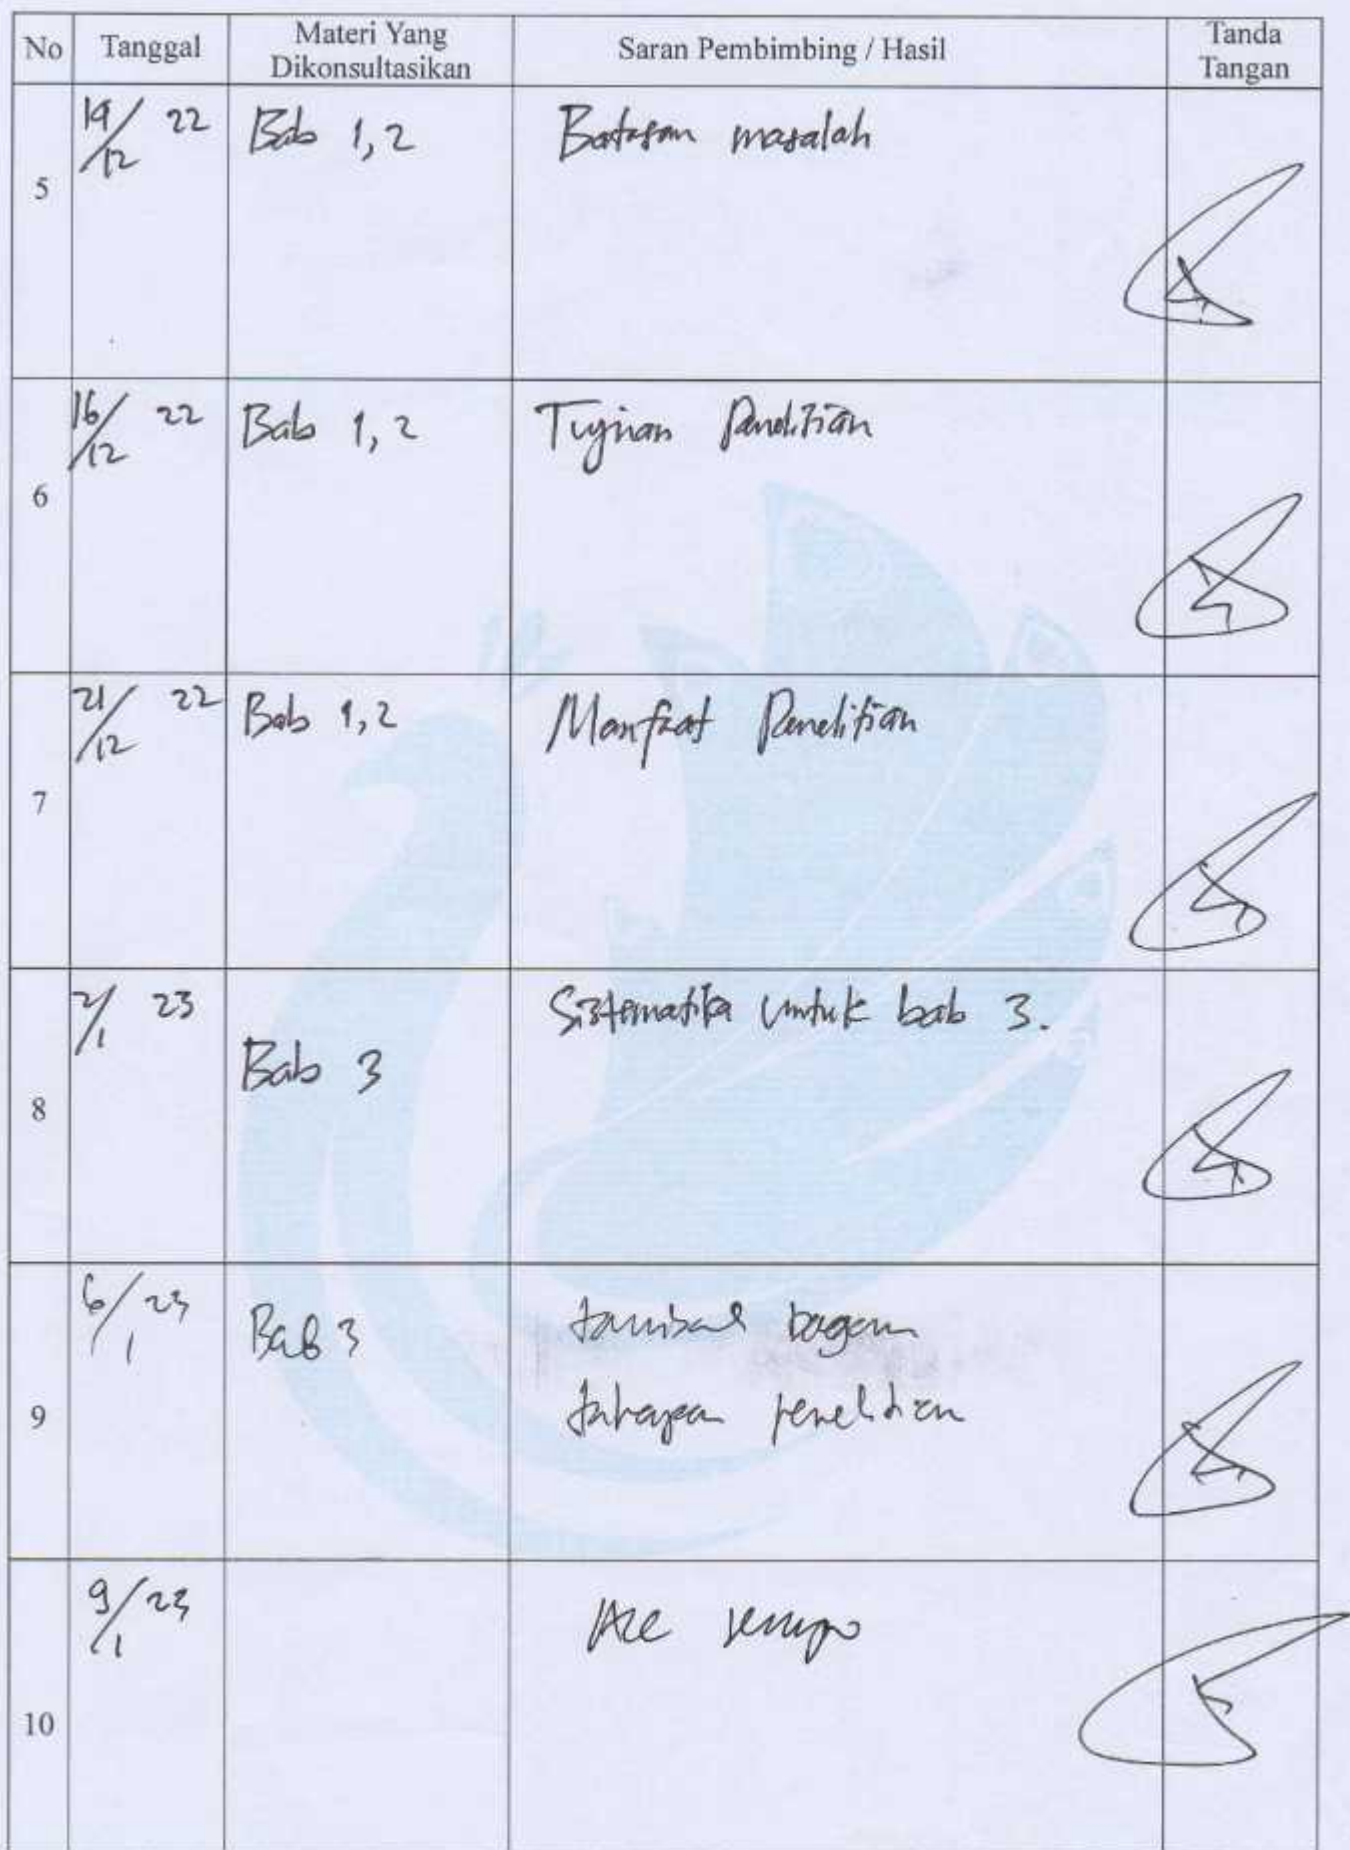 No Tanggal Materi Yang Dikonsultasikan Saran Pembimbing / Hasil Tanda Tangan
5 19/12 22 Bab 1,2 Batasan masalah
6 16/12 22 Bab 1,2 Tujuan Penelitian
7 21/12 22 Bab 1,2 Manfaat Penelitian
8 2/1 23 Bab 3 Sistematika untuk bab 3.
9 6/1 23 Bab 3 tambah bagan
tahapan penelitian
10 9/1 23 Acc sempro